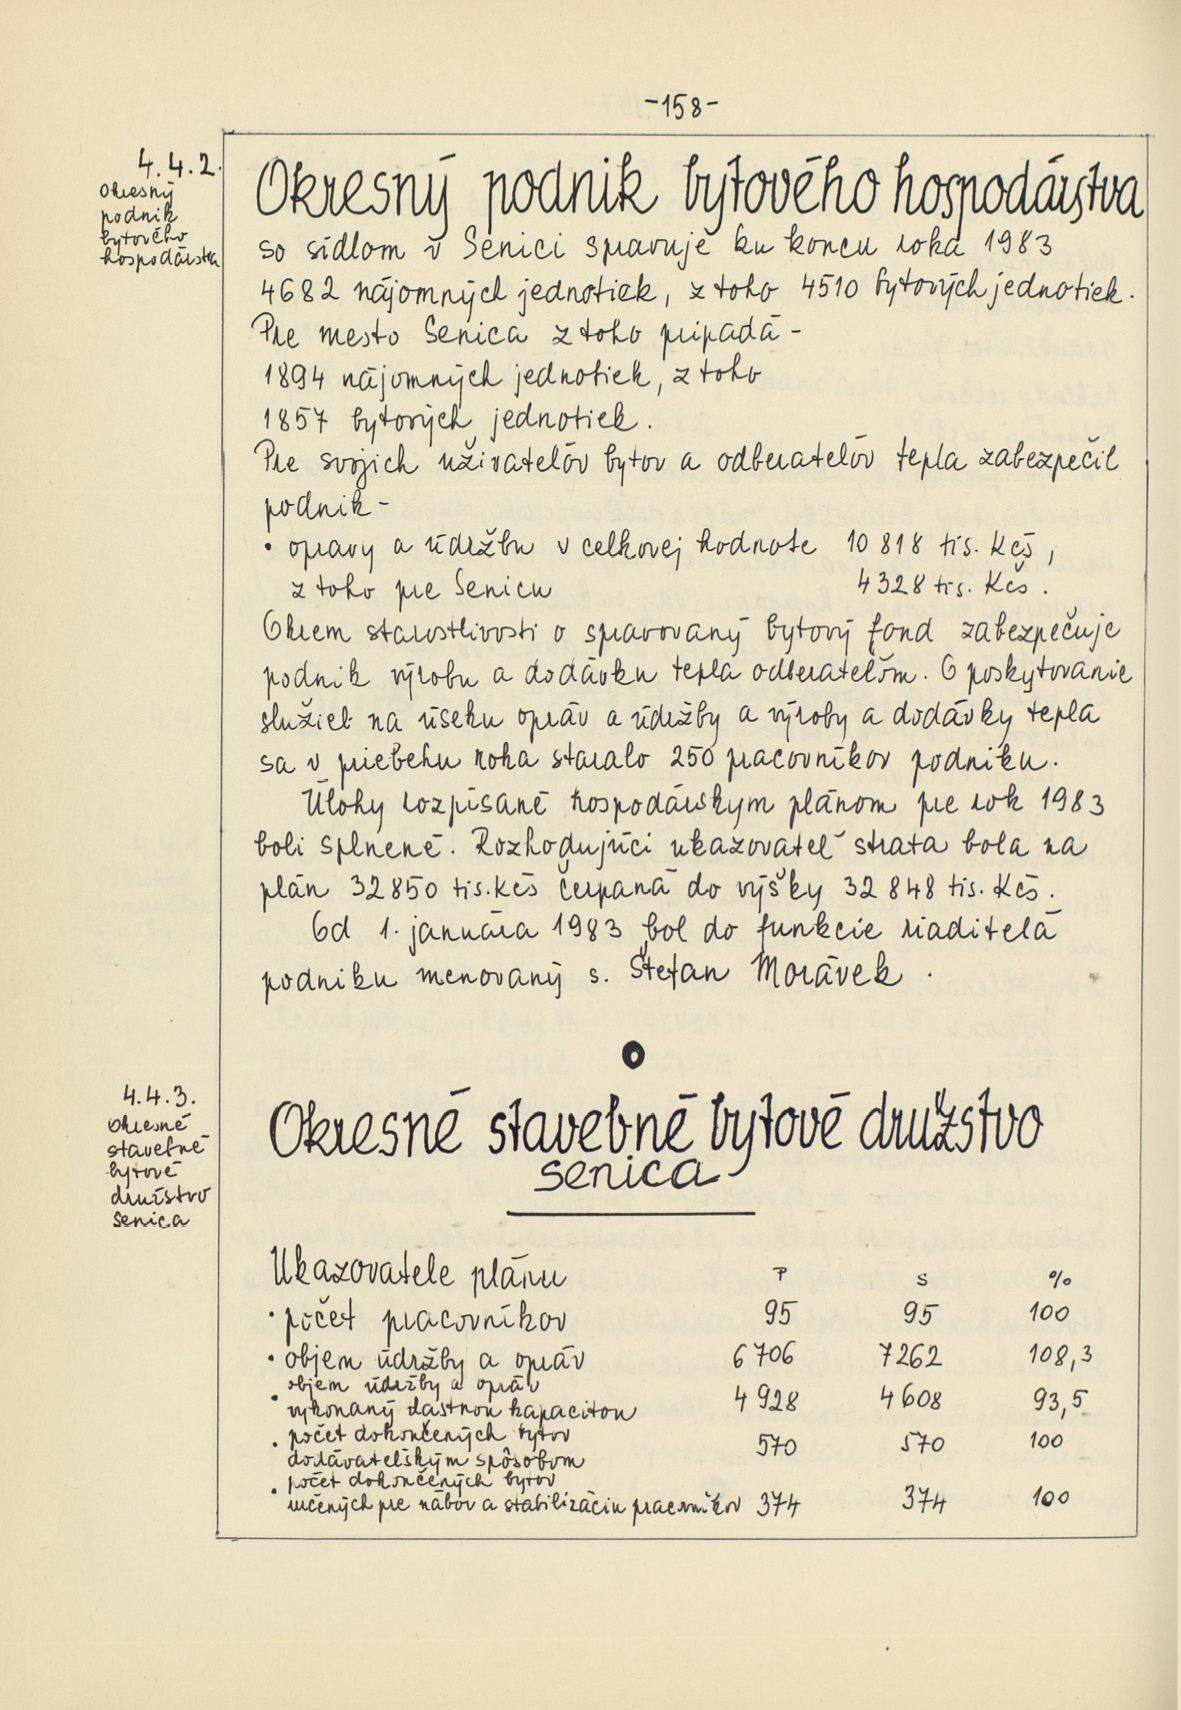 -158-
4.4.2.
Okresný
podnik
bytového
hospodárstva
Okresný podnik bytového hospodárstva
so sídlom v Senici spravuje ku koncu roka 1983
4682 nájomných jednotiek, z toho 4510 bytových jednotiek.
Pre mesto Senica z toho pripadá -
1894 nájomných jednotiek, z toho
1857 bytových jednotiek.
Pre svojich užívateľov bytov a odberateľov tepla zabezpečil
podnik -
• opravy a údržbu v celkovej hodnote 10 818 tis. Kčs,
z toho pre Senicu 4328 tis. Kčs.
Okrem starostlivosti o spravovaný bytový fond zabezpečuje
podnik výrobu a dodávku tepla odberateľom. O poskytovanie
služieb na úseku opráv a údržby a výroby a dodávky tepla
sa v priebehu roka staralo 250 pracovníkov podniku.
Úlohy rozpísané hospodárskym plánom pre rok 1983
boli splnené. Rozhodujúci ukazovateľ strata bola na
plán 32 850 tis. Kčs čerpaná do výšky 32 848 tis. Kčs.
Od 1. januára 1983 bol do funkcie riaditeľa
podniku menovaný s. Štefan Morávek.
4.4.3.
Okresné
stavebné
bytové
družstvo
Senica
Okresné stavebné bytové družstvo
Senica
Ukazovatele plánu P S %
• počet pracovníkov 95 95 100
• objem údržby a opráv 6706 7262 108,3
• objem údržby a opráv
vykonaný vlastnou kapacitou 4928 4608 93,5
• počet dokončených bytov
dodávateľským spôsobom 570 570 100
• počet dokončených bytov
určených pre nábor a stabilizáciu pracovníkov 374 374 100